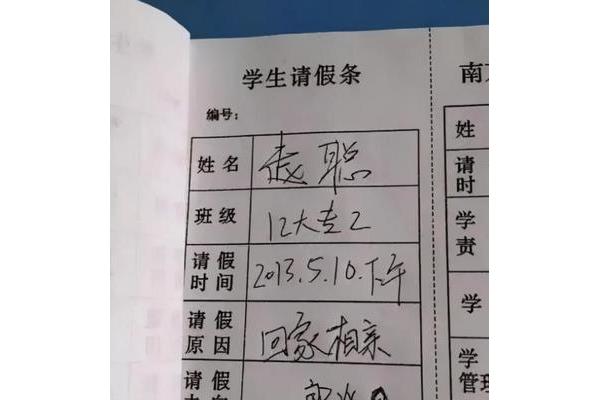 学生请假条
编号:
姓名 聪
班级 12大专2
请假时间 2013.5.10.下午
请假原因 回家相亲
请假
南
姓
请时
学责
学
学管理